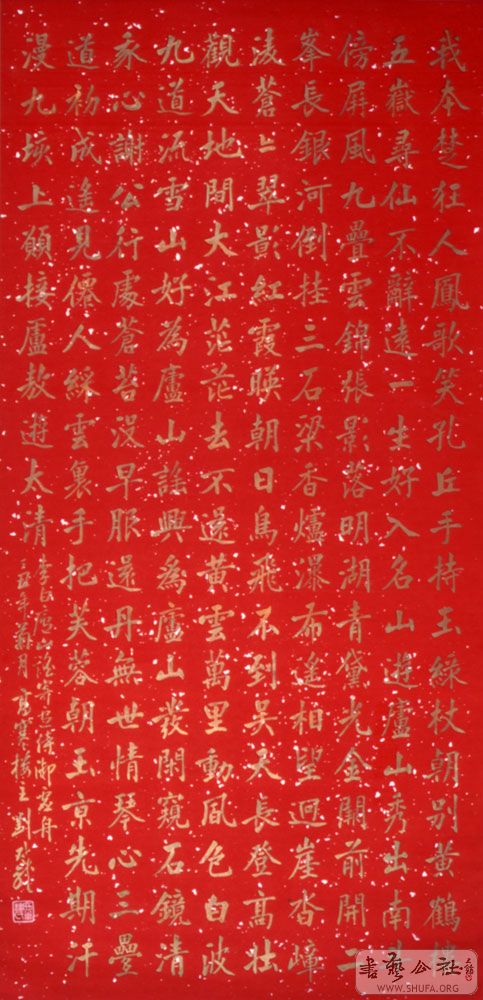 我本楚狂人鳳歌笑孔丘手持玉綠杖朝別黃鶴樓
五嶽尋仙不辭遠一生好入名山遊廬山秀出南斗
傍屏風九疊雲錦張影落明湖青黛光金闕前開二
峯長銀河倒挂三石梁香爐瀑布遙相望迴崖沓嶂
凌蒼々翠影紅霞暎朝日鳥飛不到吳天長登高壯
觀天地間大江茫茫去不還黃雲萬里動風色白波
九道流雪山好為廬山謠興為廬山發閑窺石鏡清
我心謝公行處蒼苔沒早服還丹無世情琴心三疊
道初成遙見僊人綵雲裏手把芙蓉朝玉京先期汗
漫九垓上願接盧敖遊太清
李白廬山謠寄盧侍御虛舟
年菊月寒樓主劉
書藝公社
WWW.SHUFA.ORG